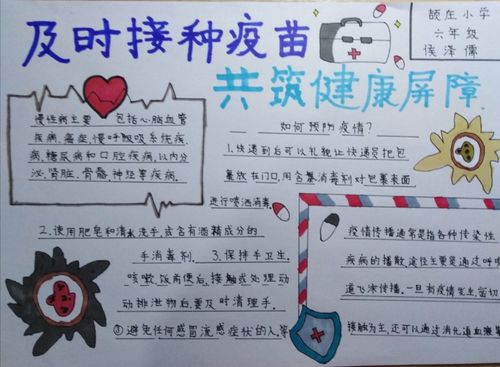 及时接种疫苗
共筑健康屏障
颉庄小学
六年级
侯泽儒
慢性病主要 包括心脑血管
疾病,癌症,慢呼吸系统疾
病,糖尿病和口腔疾病,以内分
泌,肾脏,骨骼,神经等疾病.
如何预防疫情?
1.快递到后可以礼貌让快递员把包
裹放在门口,用含氯消毒剂对包裹表面
进行喷洒消毒
2.使用肥皂和清水洗手,或含有酒精成分的
手消毒剂. 3.保持手卫生.
咳嗽,饭前便后,接触或处理动
动排泄物后,要及时清理手.
③避免任何感冒流感症状的人,等
疫情传播通常是指各种传染性
疾病的播散,途径主要是通过呼吸
道飞沫传播,一旦有疫情发生,密切
接触为主,还可以通过消化道血液